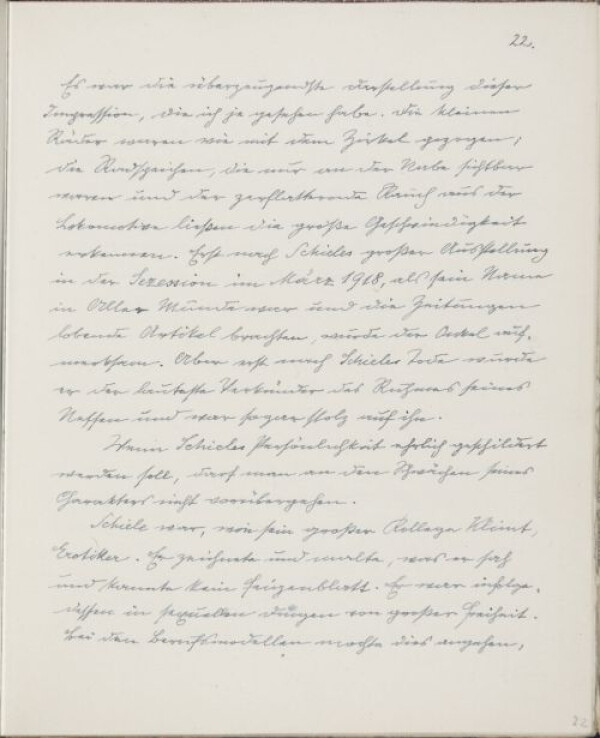 22.
Es war die überzeugendste Darstellung dieser
Impression, die ich je gesehen habe. Die kleinen
Räder waren wie mit dem Zirkel gezogen;
die Radspeichen, die nur an der Nabe sichtbar
waren und der zerflatternde Rauch aus der
Lokomotive ließen die große Geschwindigkeit
erkennen. Erst nach Schieles großer Ausstellung
in der Sezession im März 1918, als sein Name
in Aller Munde war und die Zeitungen
lobende Artikel brachten, wurde der Onkel auf-
merksam. Aber erst nach Schieles Tode wurde
er der lauteste Verkünder des Ruhmes seines
Neffen und war sogar stolz auf ihn.
Wenn Schieles Persönlichkeit ehrlich geschildert
werden soll, darf man an den Schwächen seines
Charakters nicht vorübergehen.
Schiele war, wie sein großer Kollege Klimt,
Erotiker. Er zeichnete und malte, was er sah
und kannte kein Feigenblatt. Er war infolge-
dessen in sexuellen Dingen von großer Freiheit.
Bei den Berufsmodellen mochte dies angehen,
22